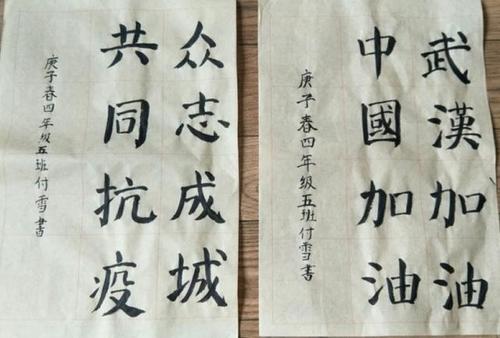 众志成城
共同抗疫
庚子春四年级五班付雪書
武漢加油
中國加油
庚子春四年级五班付雪書